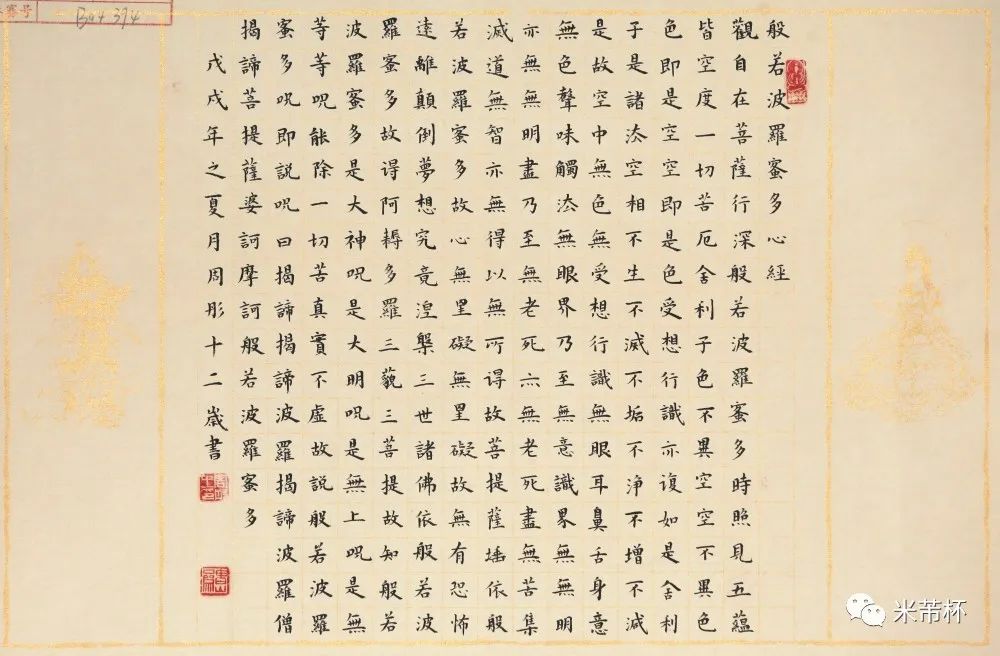 般若波羅蜜多心經
觀自在菩薩行深般若波羅蜜多時照見五蘊
皆空度一切苦厄舍利子色不異空空不異色
色即是空空即是色受想行識亦復如是舍利
子是諸法空相不生不滅不垢不淨不增不減
是故空中無色無受想行識無眼耳鼻舌身意
無色聲味觸法無眼界乃至無意識界無無明
亦無無明盡乃至無老死亦無老死盡無苦集
滅道無智亦無得以無所得故菩提薩埵依般
若波羅蜜多故心無罣礙無罣礙故無有恐怖
遠離顛倒夢想究竟涅槃三世諸佛依般若波
羅蜜多故得阿耨多羅三藐三菩提故知般若
波羅蜜多是大神呪是大明呪是無上呪是無
等等呪能除一切苦真實不虛故説般若波羅
蜜多呪即説呪曰揭諦揭諦波羅揭諦波羅僧
揭諦菩提薩婆訶摩訶般若波羅蜜多
戊戌年之夏月周彤十二歲書
B44 394
米芾杯